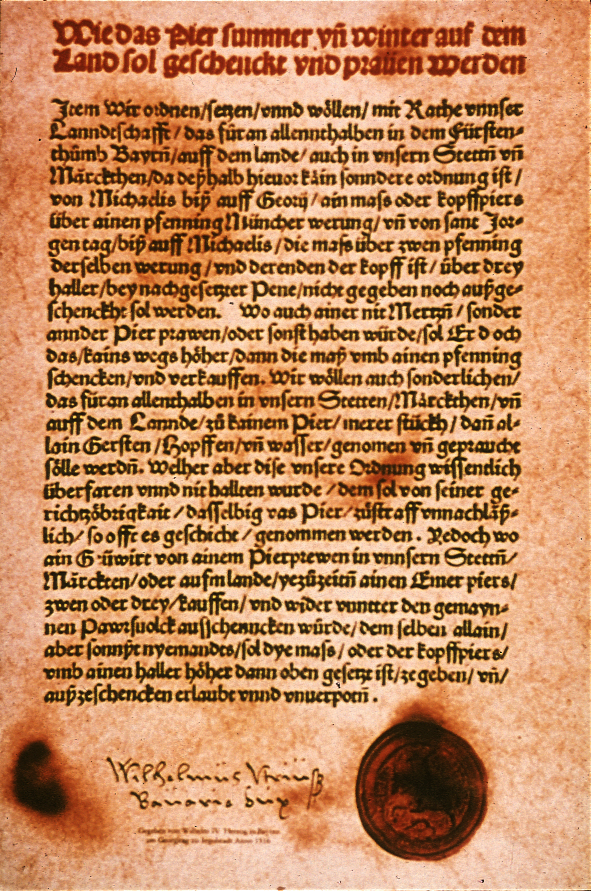 Wie das Pier summer vñ winter auf dem
Land sol geschenckt vnd prauen werden
Item Wir ordnen/setzen/vnnd wöllen/mit Rathe vnnser
Lanndtschafft/das füran allennthalben in dem Fürsten-
thůmb Bayrñ/auff dem lande/auch in vnsern Stettñ vñ
Märckthen/da deßhalb hieuor kain sonndere ordnung ist/
von Michaelis biß auff Georij/ain mass oder kopffpiers
über ainen pfenning Müncher werung/vñ von sant Jor-
gen tag/biß auff Michaelis/die mass über zwen pfenning
derselben werung/vnd derenden der kopff ist/über drey
haller/bey nachgesetzter Pene/nicht gegeben noch außge-
schenckht sol werden. Wo auch ainer nit Mertzñ/sonder
annder Pier prawen/oder sonst haben würde/sol Er doch
das/kains wegs höher/dann die maß vmb ainen pfenning
schencken/vnd verkauffen. Wir wöllen auch sonderlichen/
das füran allenthalben in vnsern Stetten/Märckthen/vñ
auff dem Lannde/zů kainem Pier/merer stückh/dañ al-
lain Gersten/Hopffen/vñ wasser/genomen vñ geprauche
sölle werdñ. Welher aber dise vnsere Ordnung wissentlich
überfaren vnnd nit hallten wurde/dem sol von seiner ge-
richtzöbrigkait/dasselbig vas Pier/zůstraff vnnachläß-
lich/so offt es geschicht/genommen werden. Yedoch wo
ain Gäüwirt von ainem Pierprewen in vnnsern Stettñ/
Märckten/oder aufm lande/yezůzeitñ ainen Emer piers/
zwen oder drey/kauffen/vnd wider vnntter den gemayn-
nen Pawrsuolck ausschenncken würde/dem selben allain/
aber sonnßt nyemandts/sol dye mass/oder der kopffpiers/
vmb ainen haller höher dann oben gesetzt ist/ze geben/vñ/
außzeschencken erlaubt vnnd vnuerpotñ.
Gegeben von Wilhelm IV. Herzog in Bayern
am Georgitag zu Ingolstadt Anno 1516